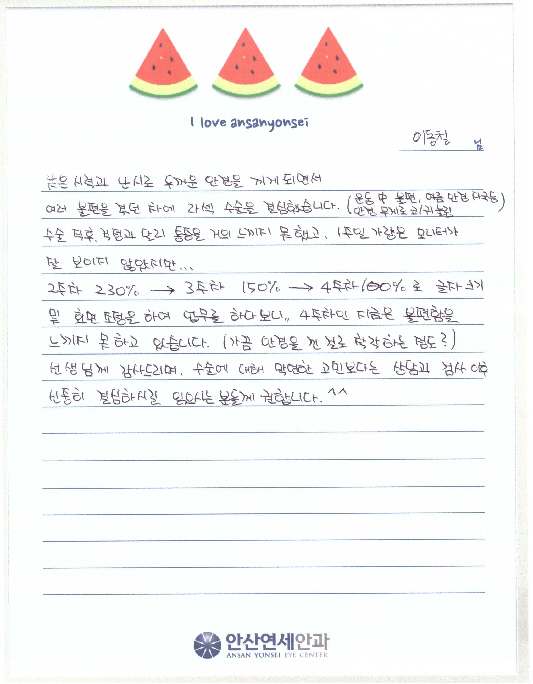 I love ansanyonsei
이동철 님
시력과 난시로 두꺼운 안경을 끼게 되면서
여러 불편을 겪던 차에 라섹 수술을 결심했습니다. (운동 中 불편, 여름 안경 자국 등
안경 무게로 코/귀 눌림)
수술 직후, 걱정과 달리 통증을 거의 느끼지 못 했고, 1주일 가량은 모니터가
잘 보이지 않았지만...
2주차 230% → 3주차 150% → 4주차 100% 로 글자 크기
및 화면 조정을 하여 업무를 하다보니, 4주차인 지금은 불편함을
느끼지 못 하고 있습니다. (가끔 안경을 낀 걸로 착각하는 정도?)
선생님께 감사드리며, 수술에 대해 막연한 고민보다는 상담과 검사 이후
신중히 결심하시길 분들께 권합니다.^^
안산연세안과
ANSAN YONSEI EYE CENTER